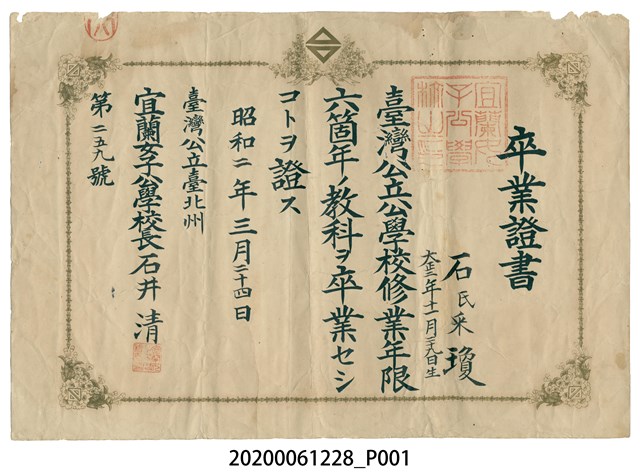 卒業證書
石氏采瓊
大正二年十一月二十九日生
臺灣公立公學校修業年限
六箇年ノ教科ヲ卒業セシ
コトヲ證ス
昭和二年三月二十四日
臺灣公立臺北州
宜蘭女子公學校長石井清
第二五九號
20200061228_P001